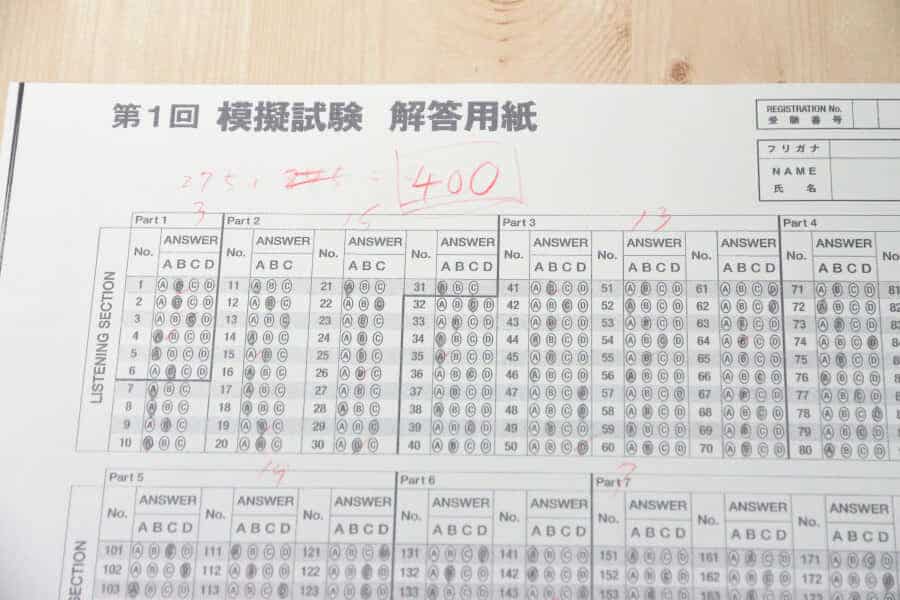 第1回 模擬試験 解答用紙
REGISTRATION No.
受験番号
フリガナ
NAME
氏名
400
3 13
Part 1 Part 2 Part 3 Part 4
No. ANSWER No. ANSWER No. ANSWER No. ANSWER No. ANSWER No. ANSWER No. ANSWER No. ANSWER
A B C D A B C A B C A B C D A B C D A B C D A B C D A B C D
LISTENING SECTION
1 11 21 31 41 51 61 71 81
2 12 22 32 42 52 62 72 82
3 13 23 33 43 53 63 73
4 14 24 34 44 54 64 74
5 15 25 35 45 55 65 75
6 16 26 36 46 56 66 76
7 17 27 37 47 57 67 77
8 18 28 38 48 58 68 78
9 19 29 39 49 59 69 79
10 20 30 40 50 60 70 80
Part 5 Part 6 Part 7
No. ANSWER No. ANSWER No. ANSWER No. ANSWER No. ANSWER No. ANSWER No. ANSWER No. ANSWER
A B C D A B C D A B C D A B C D A B C D A B C D A B C D A B C D
SECTION
101 111 121 131 141 151 161 171
102 112 122 132 142 152 162 172
103 113 123 133 143 153 163 173